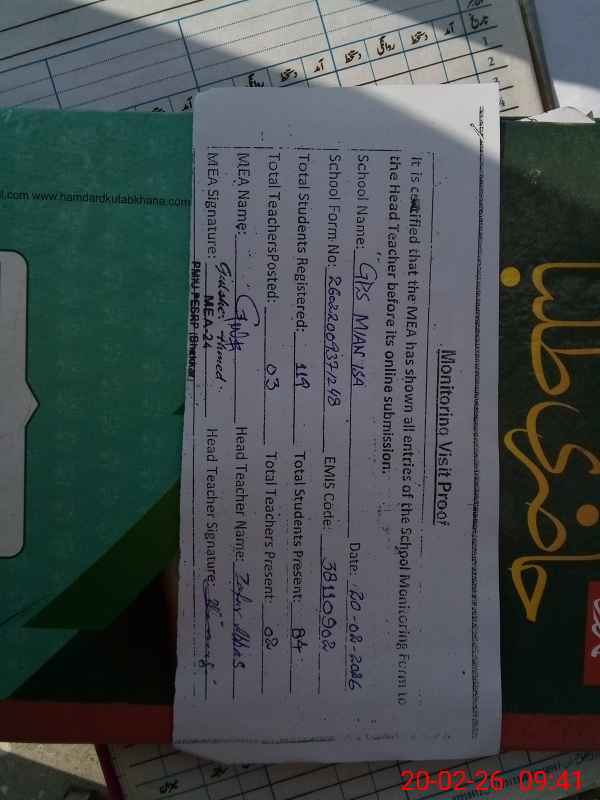 Monitoring Visit Proof
It is certified that the MEA has shown all entries of the School Monitoring Form to
the Head Teacher before its online submission.
School Name: GPS MIAN ISA Date: 20-02-2026
School Form No: 2602200937248 EMIS Code: 38110902
Total Students Registered: 119 Total Students Present: 84
Total TeachersPosted: 03 Total Teachers Present: 02
MEA Name: Head Teacher Name: Zafar Abbas
MEA Signature: Gulsher Ahmed Head Teacher Signature:
MEA-24
PMIU-PESRP (Bhakkar)
l.com www.hamdardkutabkhana.com
حاضری طلبا
20-02-26 09:41